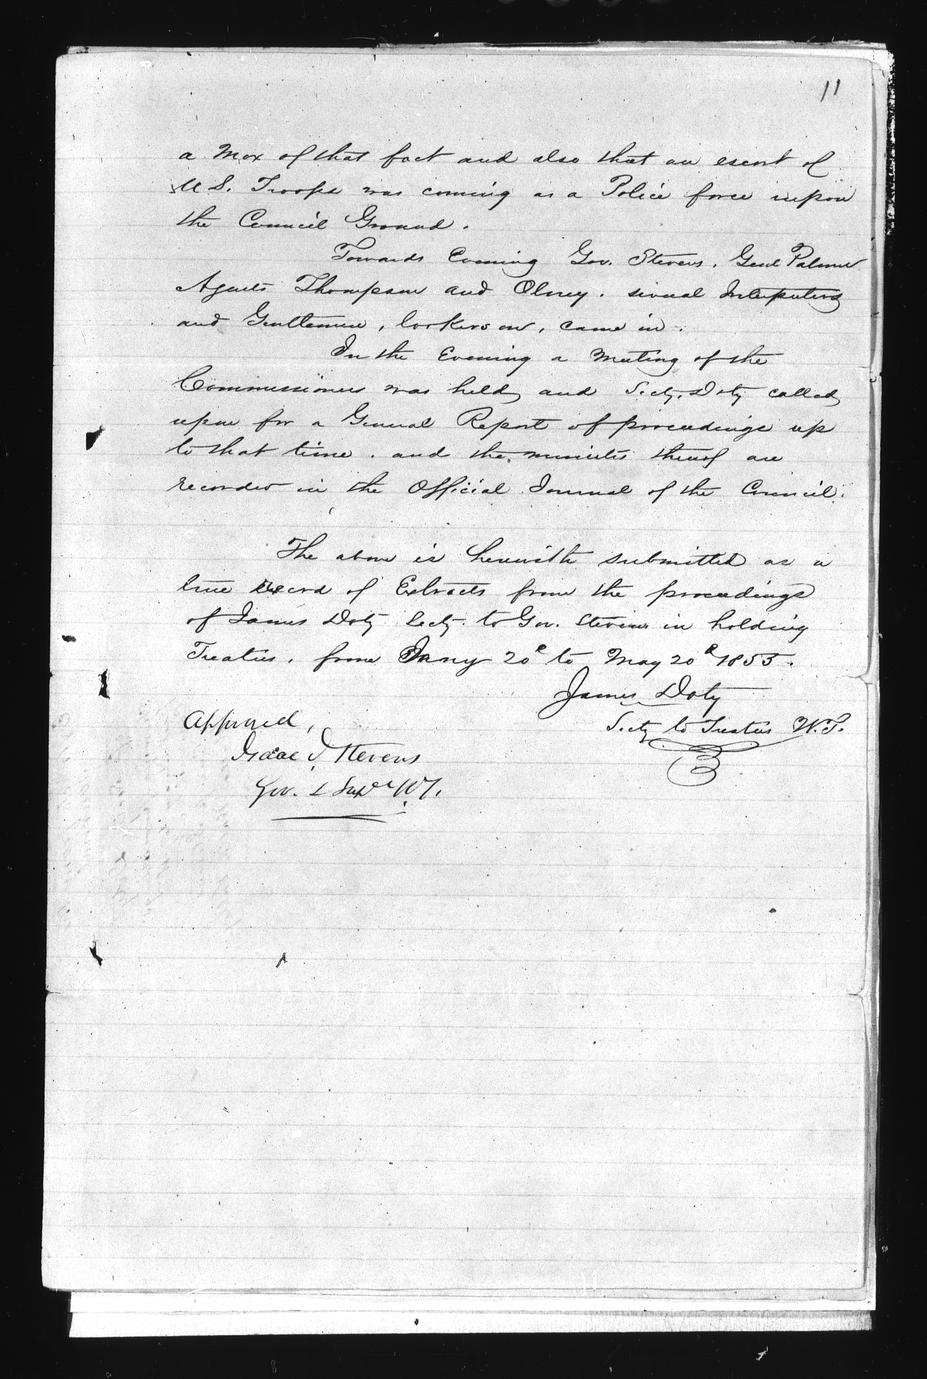 11
a Mox of that fact and also that an escort of
U S. Troops was coming as a Police force upon
the Council Ground.
Towards Evening Gov. Stevens. Genl Palmer
Agents Thompson and Olney. several Interpeters
and Gentlemen, lookers on, came in.
In the Evening a Meeting of the
Commissioners was held and Secty. Doty called
upon for a General Report of proceedings up
to that time. and the minutes thereof are
recorded in the Official Journal of the Council.
The above is herewith submitted as a
true Record of Extracts from the proceedings
of James Doty Secty. to Gov. Stevens in holding
Treaties. from Jany 20th to May 20th 1855.
James Doty
Secty to Treaties W.T.
Approved,
Isaac I. Stevens
Gov. & Supt W.T.